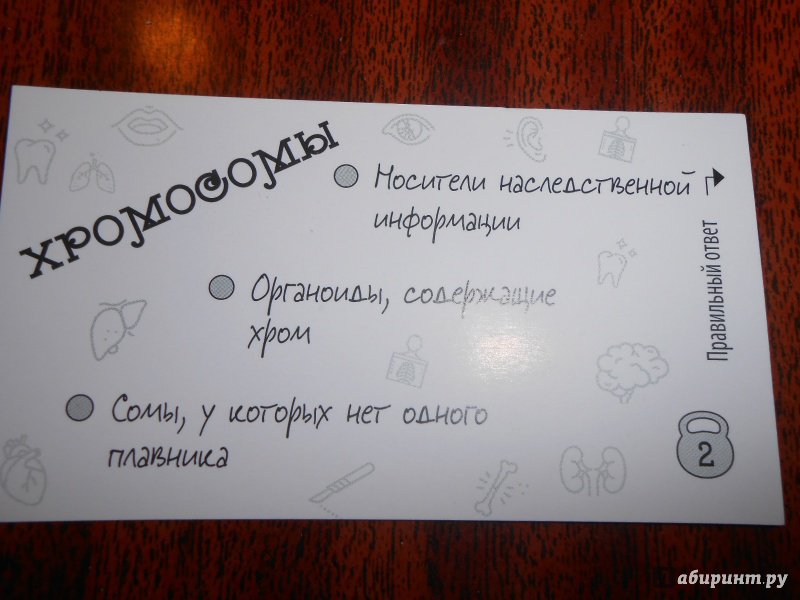 ХРОМОСОМЫ
Носители наследственной Г
информации
Органоиды, содержащие
хром
Сомы, у которых нет одного
плавника
Правильный ответ
2
абиринт.ру